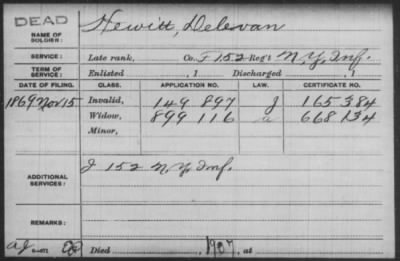 DEAD
NAME OF SOLDIER: Hewitt, Delevan
SERVICE: Late rank, Co. F 152 Reg't N.Y. Inf.
TERM OF SERVICE: Enlisted , 1 Discharged , 1
DATE OF FILING. CLASS. APPLICATION NO. LAW. CERTIFICATE NO.
1869 Nov 15 Invalid, 149 897 J 165384
Widow, 899 116 a 668134
Minor,
ADDITIONAL SERVICES: J 152 N.Y. Inf.
REMARKS:
Died , 1907, at